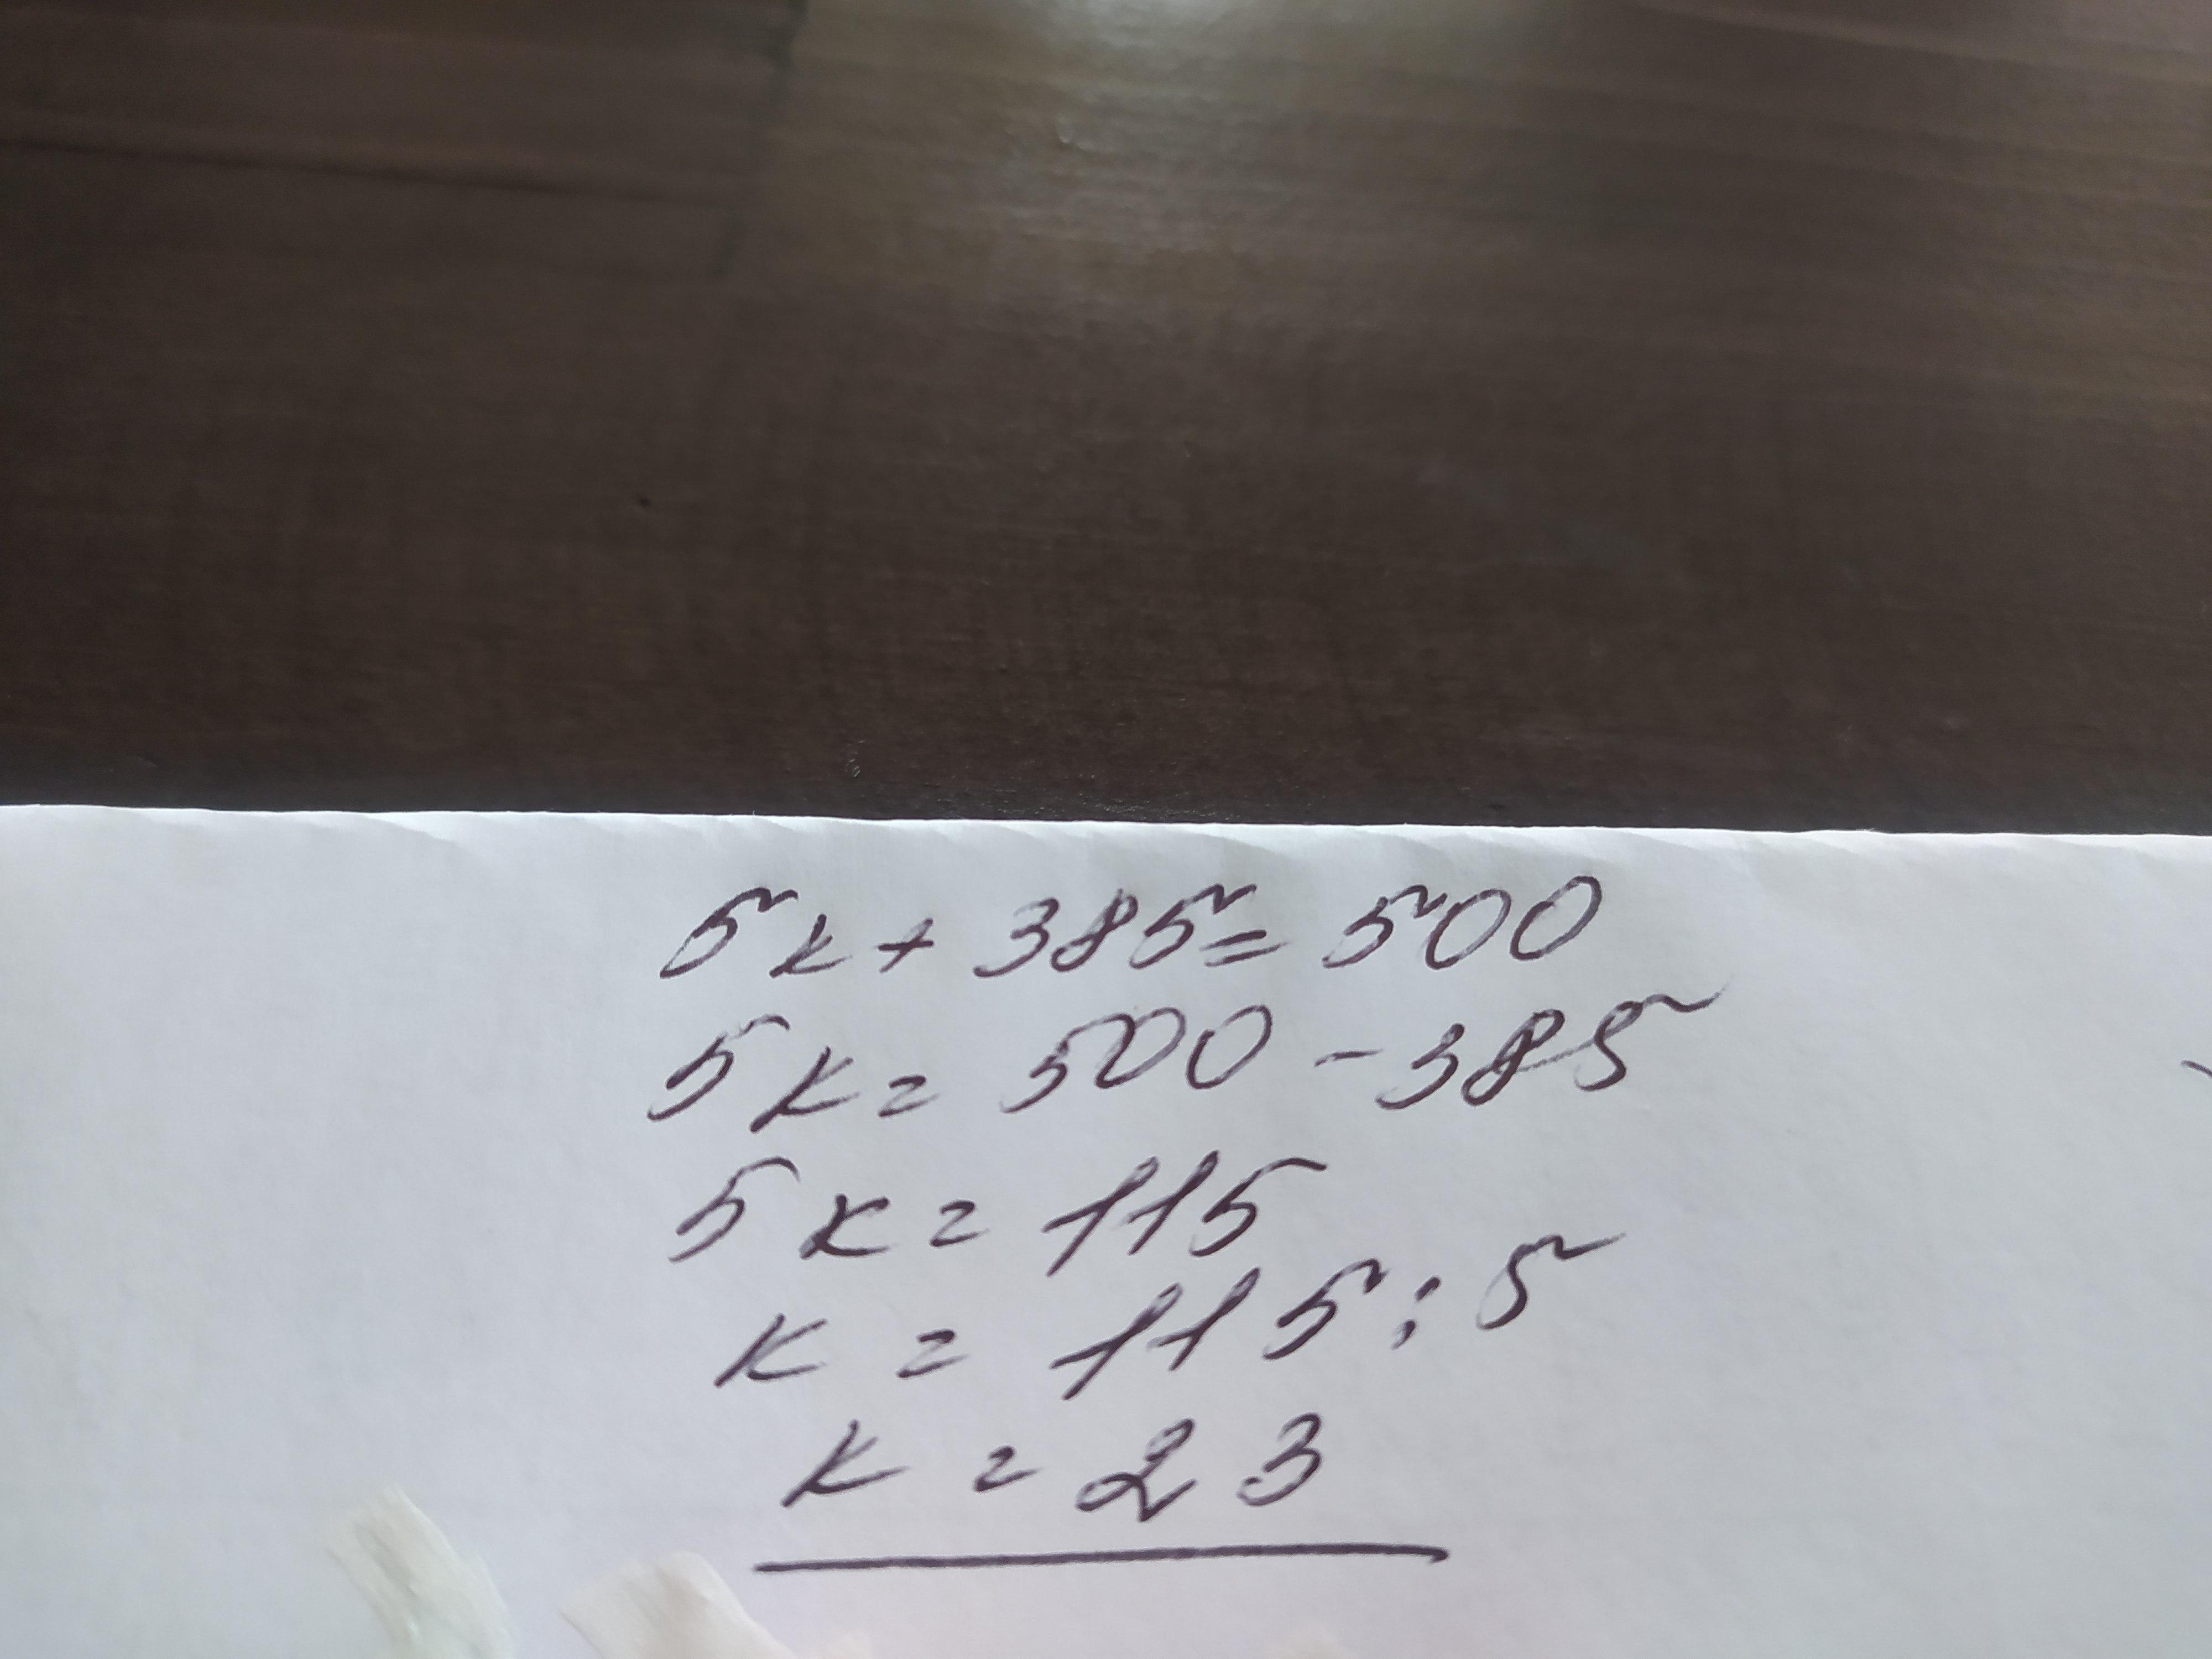 5к + 385 = 500
5к = 500 - 385
5к = 115
к = 115 : 5
к = 23